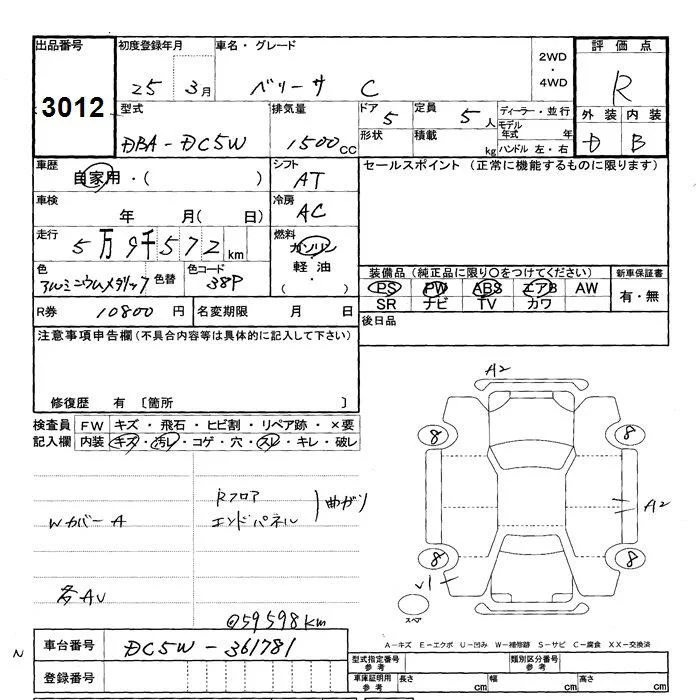 出品番号 初度登録年月 車名・グレード 2WD・4WD 評価点
3012 25 3月 ベリーサ C R
外装 内装
D B
型式 排気量 ドア 5 定員 5人 ディーラー・並行
形状 積載 kg モデル年式 年
DBA-DC5W 1500cc ハンドル 左・右
車歴 自家用・( ) シフト AT セールスポイント (正常に機能するものに限ります)
車検 年 月( 日) 冷房 AC
走行 5万9千572km 燃料 ガソリン 軽油・( )
色 アルミニウムメタリック 色替 色コード 38P
装備品(純正品に限り○をつけてください) 新車保証書
PS PW ABS エアB AW 有・無
SR ナビ TV カワ
R券 10800円 名変期限 月 日 後日品
注意事項申告欄(不具合内容等は具体的に記入して下さい)
修復歴 有 〔箇所 〕
検査員 FW キズ・飛石・ヒビ割・リペア跡・×要
記入欄 内装 キズ・汚レ・コゲ・穴・スレ・キレ・破レ
A2
8 8
Rフロア
Wカバー A エンドパネル 曲がり A2
8 8
各AU V1
スペア
@59598km
車台番号 DC5W-361781
A-キズ E-エクボ U-凹み W-補修跡 S-サビ C-腐食 XX-交換済
型式指定番号 参考 類別区分番号 参考
登録番号 車庫証明用 参考 長さ cm 幅 cm 高さ cm
N